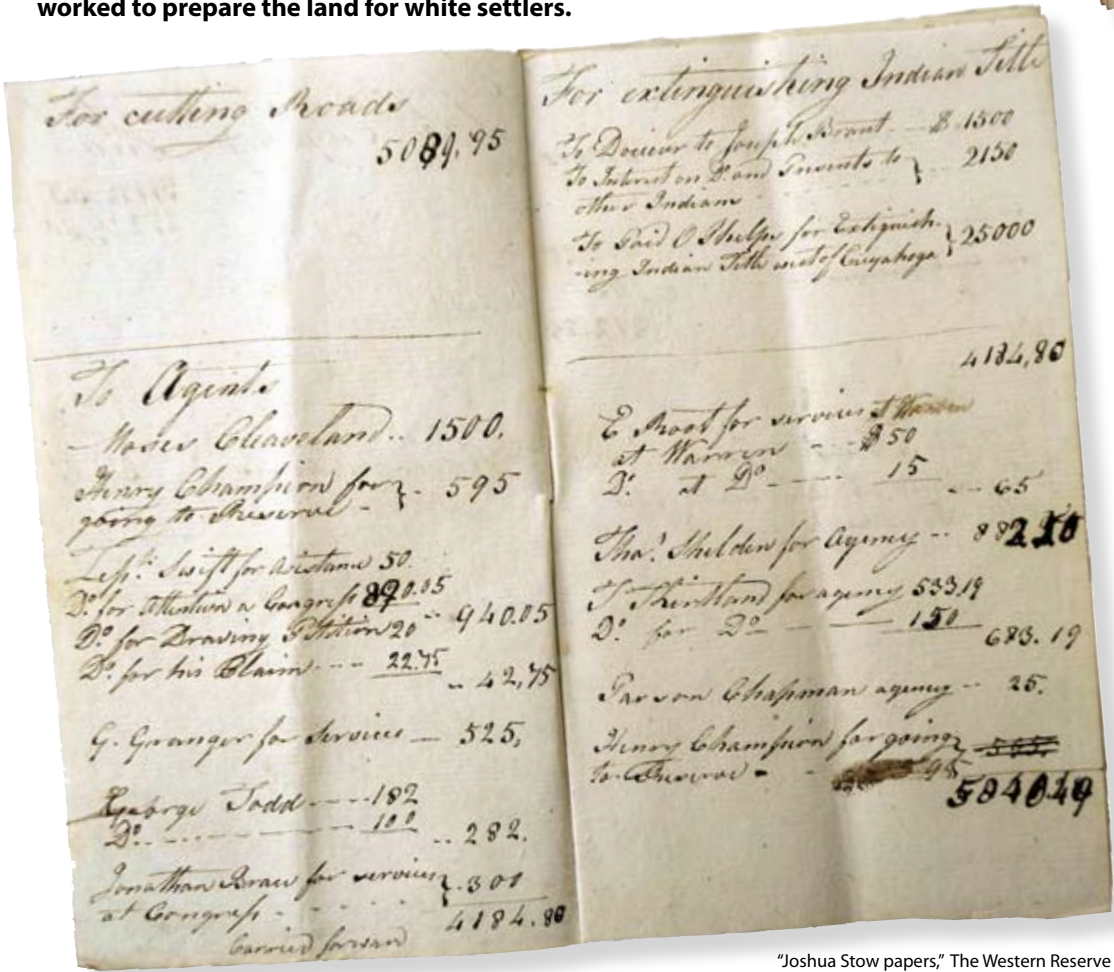 worked to prepare the land for white settlers.
For cutting Roads
5084.95
To Agents
Moses Cleaveland.. 1500.
Henry Champion for } - 595
going to Reserve -
Zeph.h Swift for assistance 50
Do. for attention a Congress 890.05
Do. for Drawing Petition 20 -- 940.05
Do. for his Claim ---- 22.75
-- 42,75
G. Granger for Services -- 525,
George Todd ---- 182
Do. ---- 100
-- 282.
Jonathan Brace for services } 300
at Congress - - - -
4184.80
Carried forwar
For extinguishing Indian Title
To Doucer to Joseph Brant -- $ 1500
To Interest on Do. and Presents to } 2150
other Indians
To Paid O Phelps for Extinguish- } 25000
-ing Indian Title west of Cuyahoga
4184,80
E Root for services at Warren
at Warren ---- $50
Do. at Do ---- 15
-- 65
Tho.s Shelden for Agency --
T Kirtland for agency 533.19
Do. for Do ---- 150
683.19
Parson Chapman agency -- 25.
Henry Champion for going
to Reserve -
"Joshua Stow papers," The Western Reserve